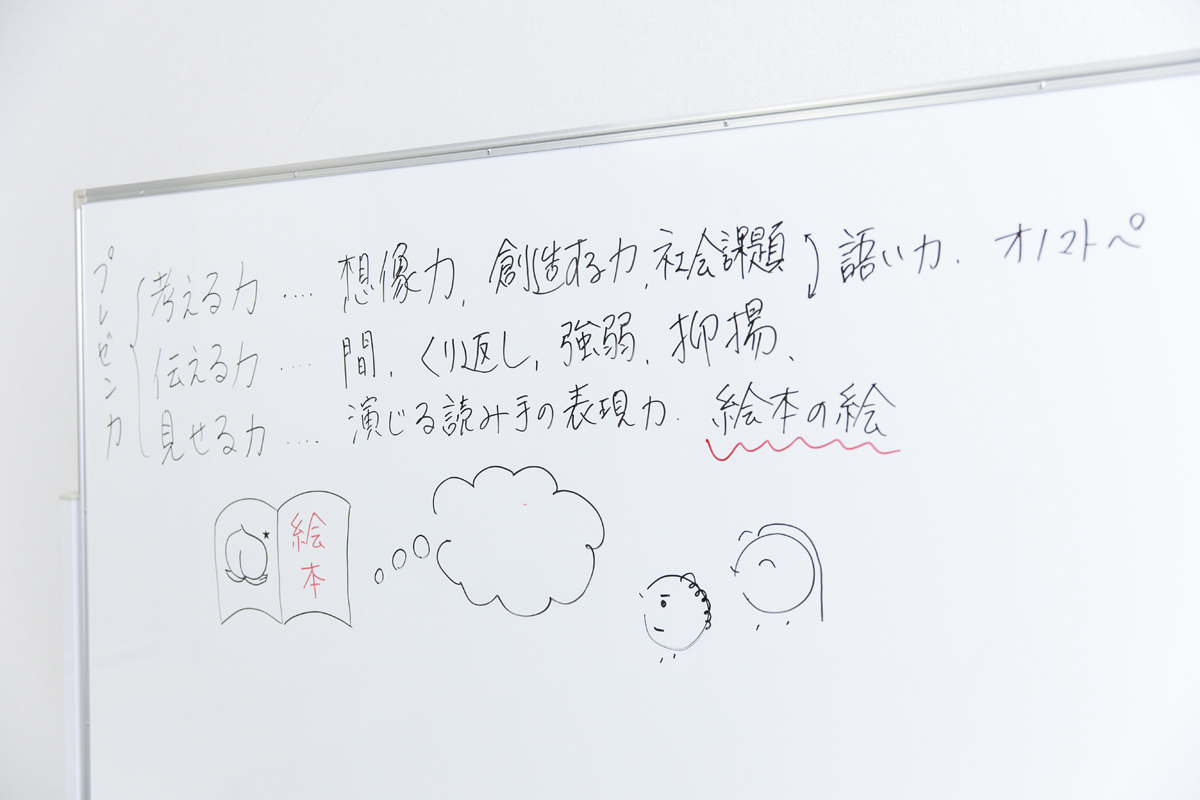 プレゼン力
考える力 ‥‥ 想像力, 創造する力, 社会課題 語い力. オノマトペ
伝える力 ‥‥ 間, くり返し, 強弱, 抑揚、
見せる力 ‥‥ 演じる読み手の表現力. 絵本の絵
絵本